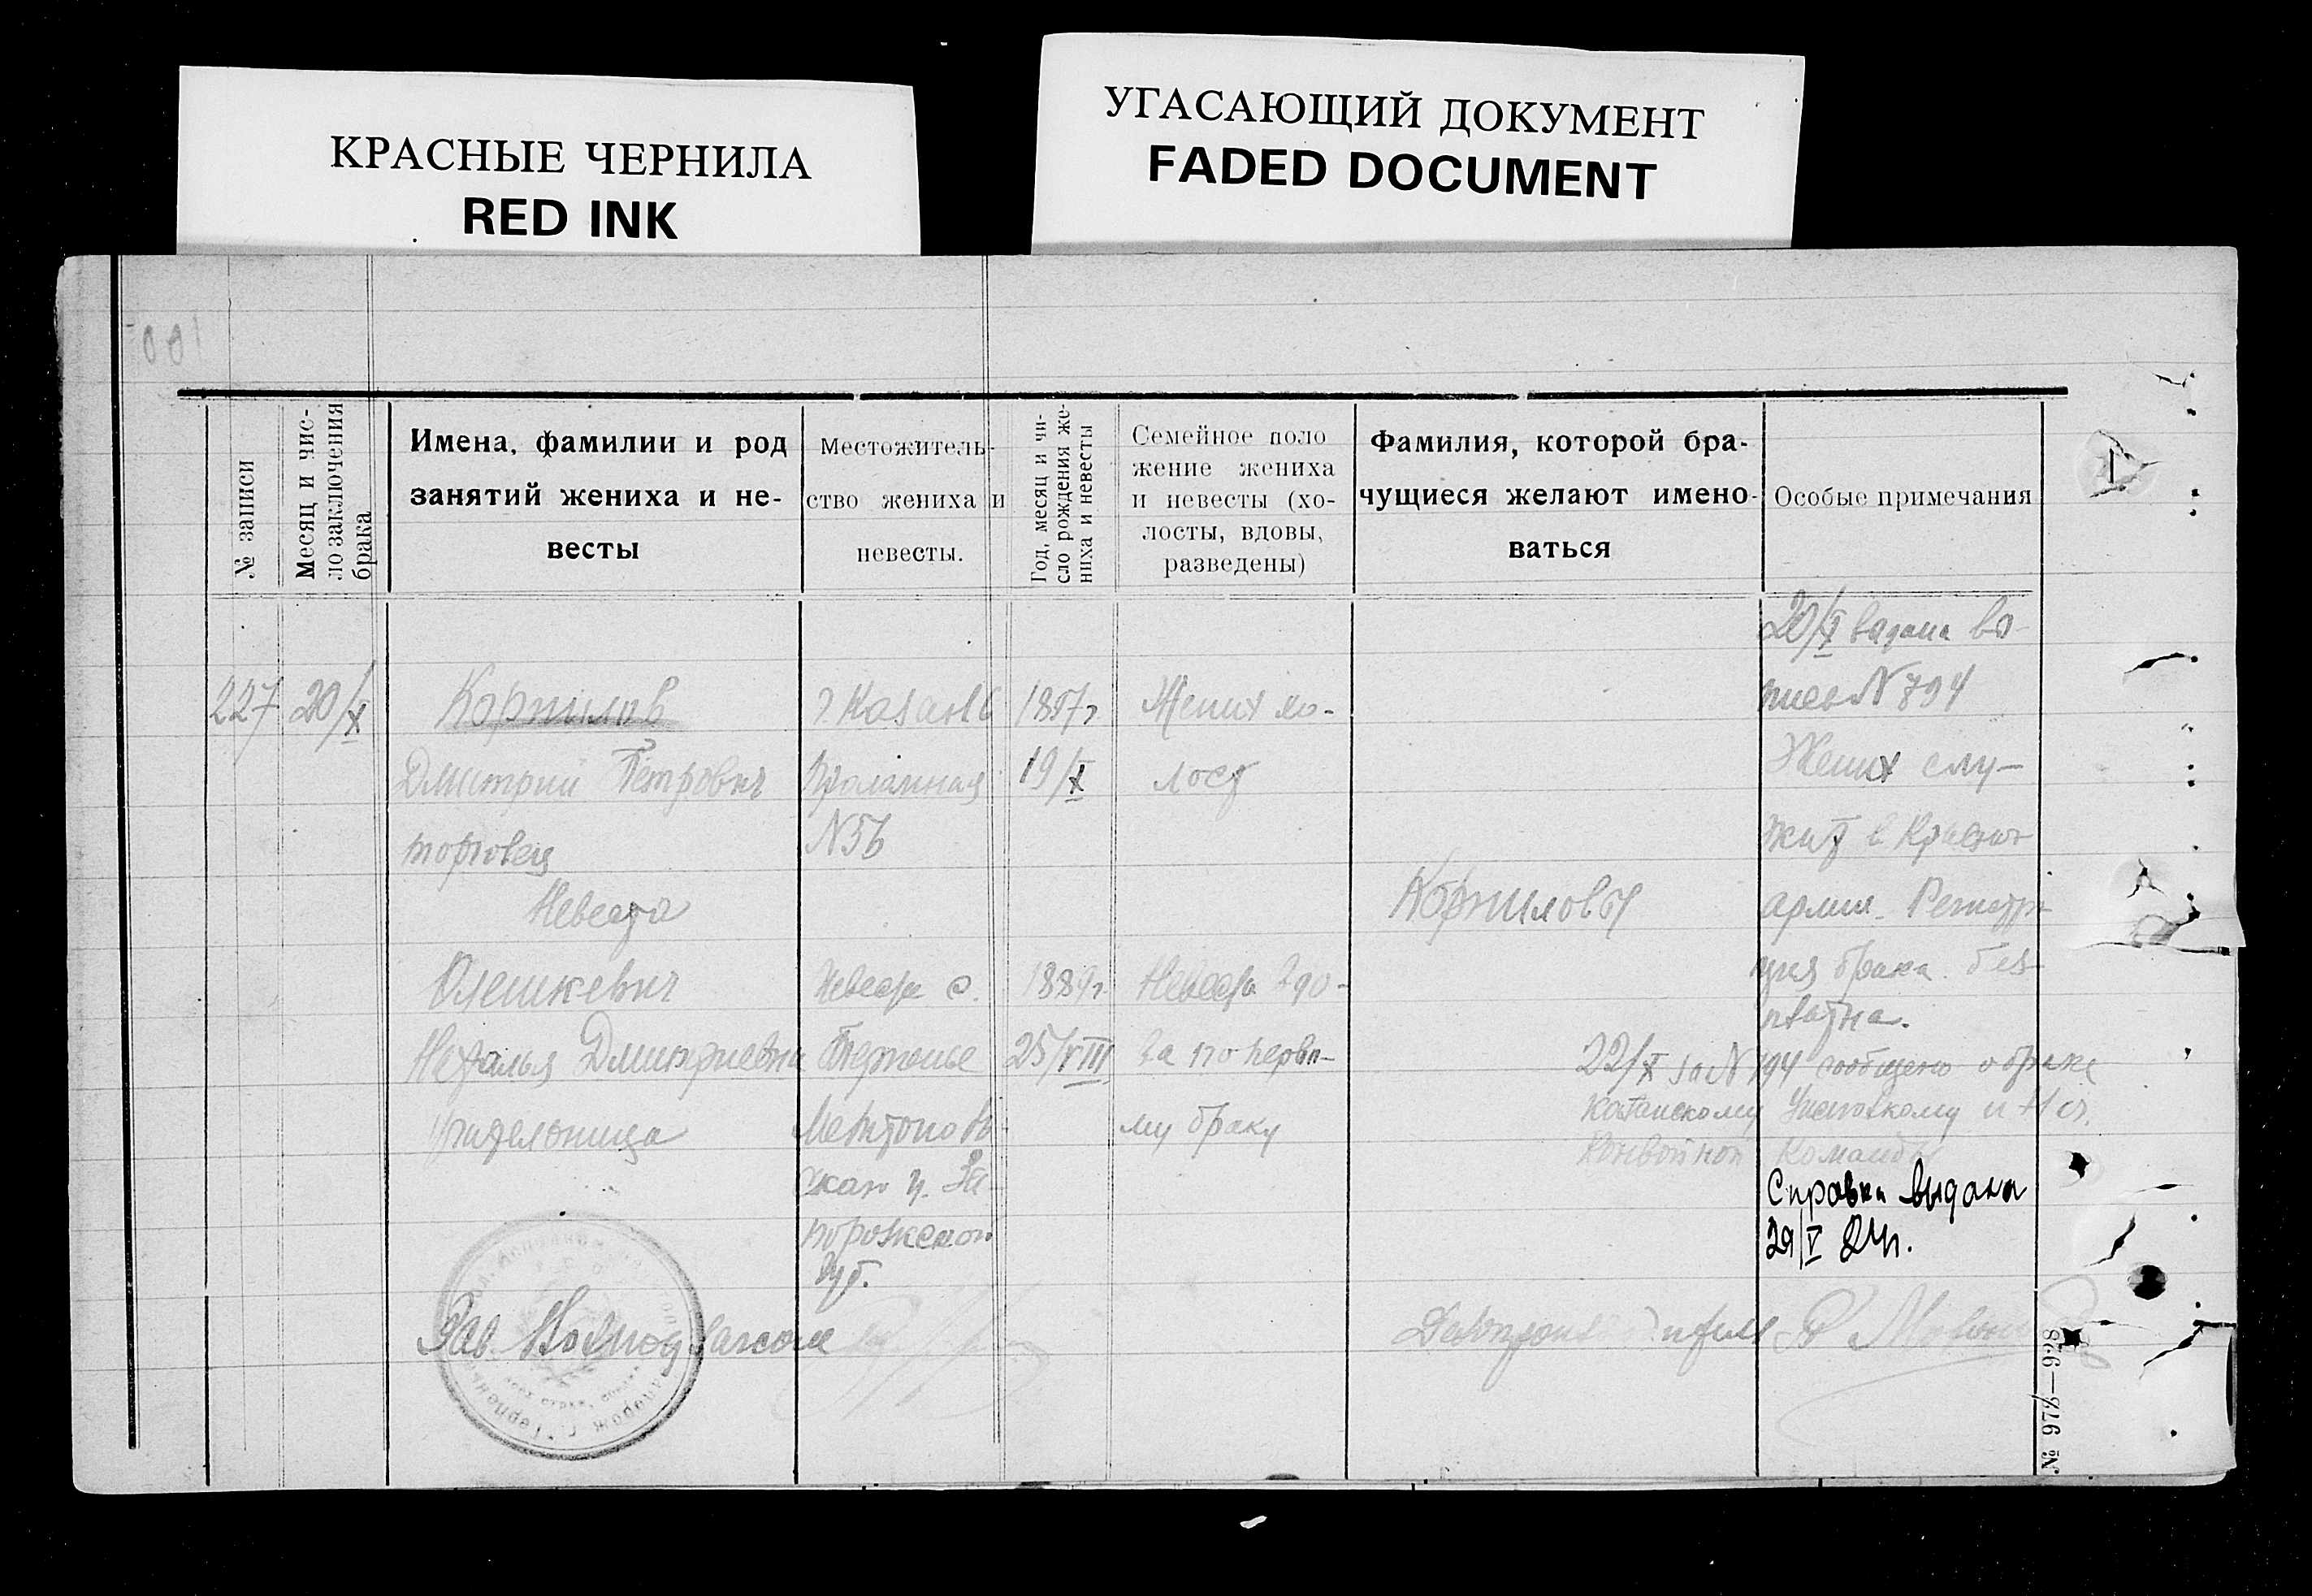 КРАСНЫЕ ЧЕРНИЛА
RED INK
УГАСАЮЩИЙ ДОКУМЕНТ
FADED DOCUMENT
№ записи
Месяц и чис-
ло заключения
брака
Имена, фамилии и род
занятий жениха и не-
весты
Местожитель-
ство жениха и
невесты.
Год, месяц и чи-
сло рождения же-
ниха и невесты
Семейное поло
жение жениха
и невесты (хо-
лосты, вдовы,
разведены)
Фамилия, которой бра-
чущиеся желают имено-
ваться
Особые примечания
227
20/X
Корнилов
Дмитрий Петрович
торговец
Невеста
Олешкевич
Наталья Дмитриевна
учительница
г. Казань
N 56
Невеста с.
Терпенье
Мелитополь
ской у. За-
порожской
губ.
1897г
19/X
1889г.
25/VIII
Жених хо-
лост
Невеста вдо-
ва по перво-
му браку
Корниловы
20/X выдана вы
пись N 794
Жених слу-
жит в Красной
армии. Регистра
ция брака бес
платна.
22/X за N 194 сообщено о браке
Казанскому
Конвойной Команды
Справка выдана
29/V 24г.
Зав.
№ 978—928